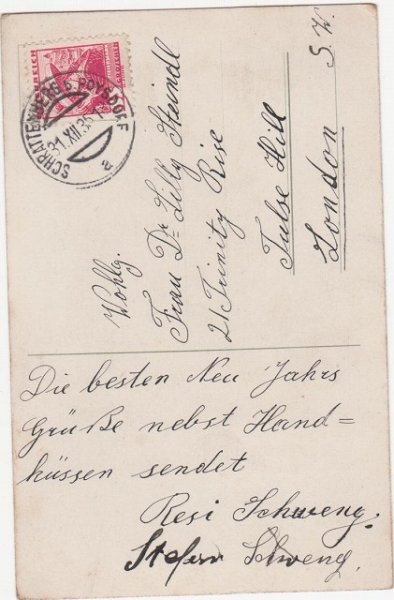 ÖSTERREICH
SCHRATTENBERG b. POYSDORF
31.XII.35
a
Wohlg.
Frau Dr. Lilly Steindl
21 Trinity Rise
Tulse Hill
London S. W.
Die besten Neu Jahrs
Grüße nebst Hand=
küssen sendet
Resi Schweng.
Stefan Schweng.